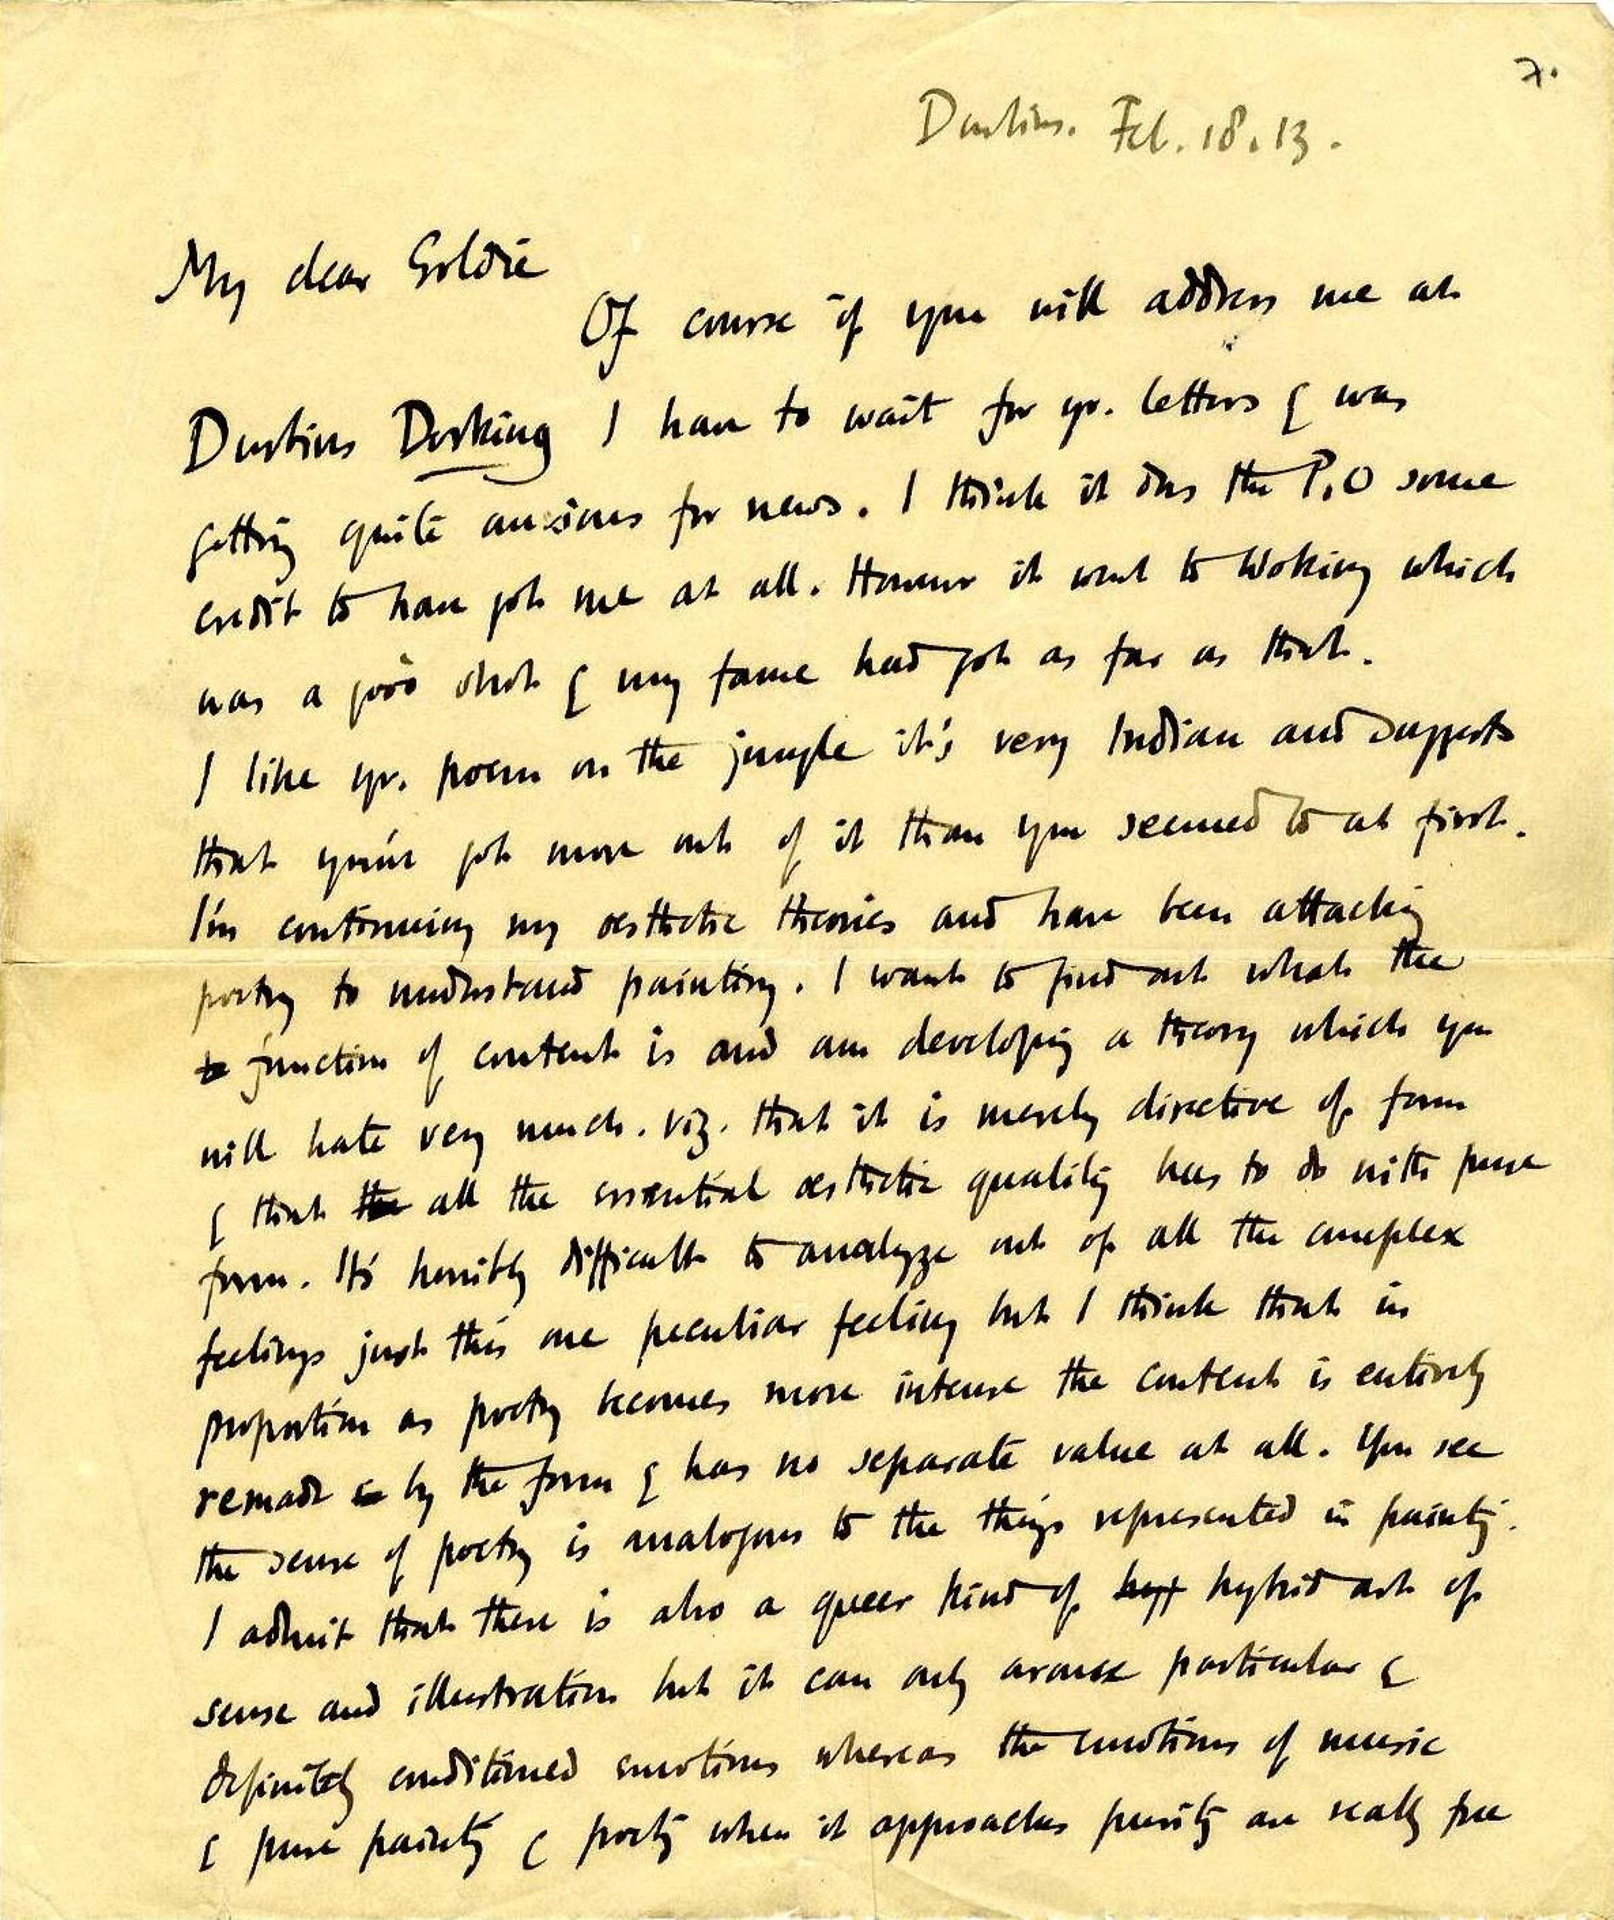 7.
Durbins. Feb. 18. 13.
My dear Goldie
Of course if you will address me at
Durbins Dorking I have to wait for yr. letters & was
getting quite anxious for news. I think it does the P.O some
credit to have got me at all. However it went to Woking which
was a good shot & my fame had got as far as that.
I like yr. poem on the jungle it's very Indian and suggests
that you've got more out of it than you seemed to at first.
I'm continuing my aesthetic theories and have been attacking
poetry to understand painting. I want to find out what the
function of content is and am developing a theory which you
will hate very much. viz. that it is merely directive of form
& that all the essential aesthetic quality has to do with pure
form. It's horribly difficult to analyze out of all the complex
feelings just this one peculiar feeling but I think that in
proportion as poetry becomes more intense the content is entirely
remade by the form & has no separate value at all. You see
the sense of poetry is analogous to the things represented in painting.
I admit that there is also a queer kind of hybrid art of
sense and illustration but it can only arouse particular &
definitely conditioned emotions whereas the emotions of music
& pure painting & poetry when it approaches purity are really free